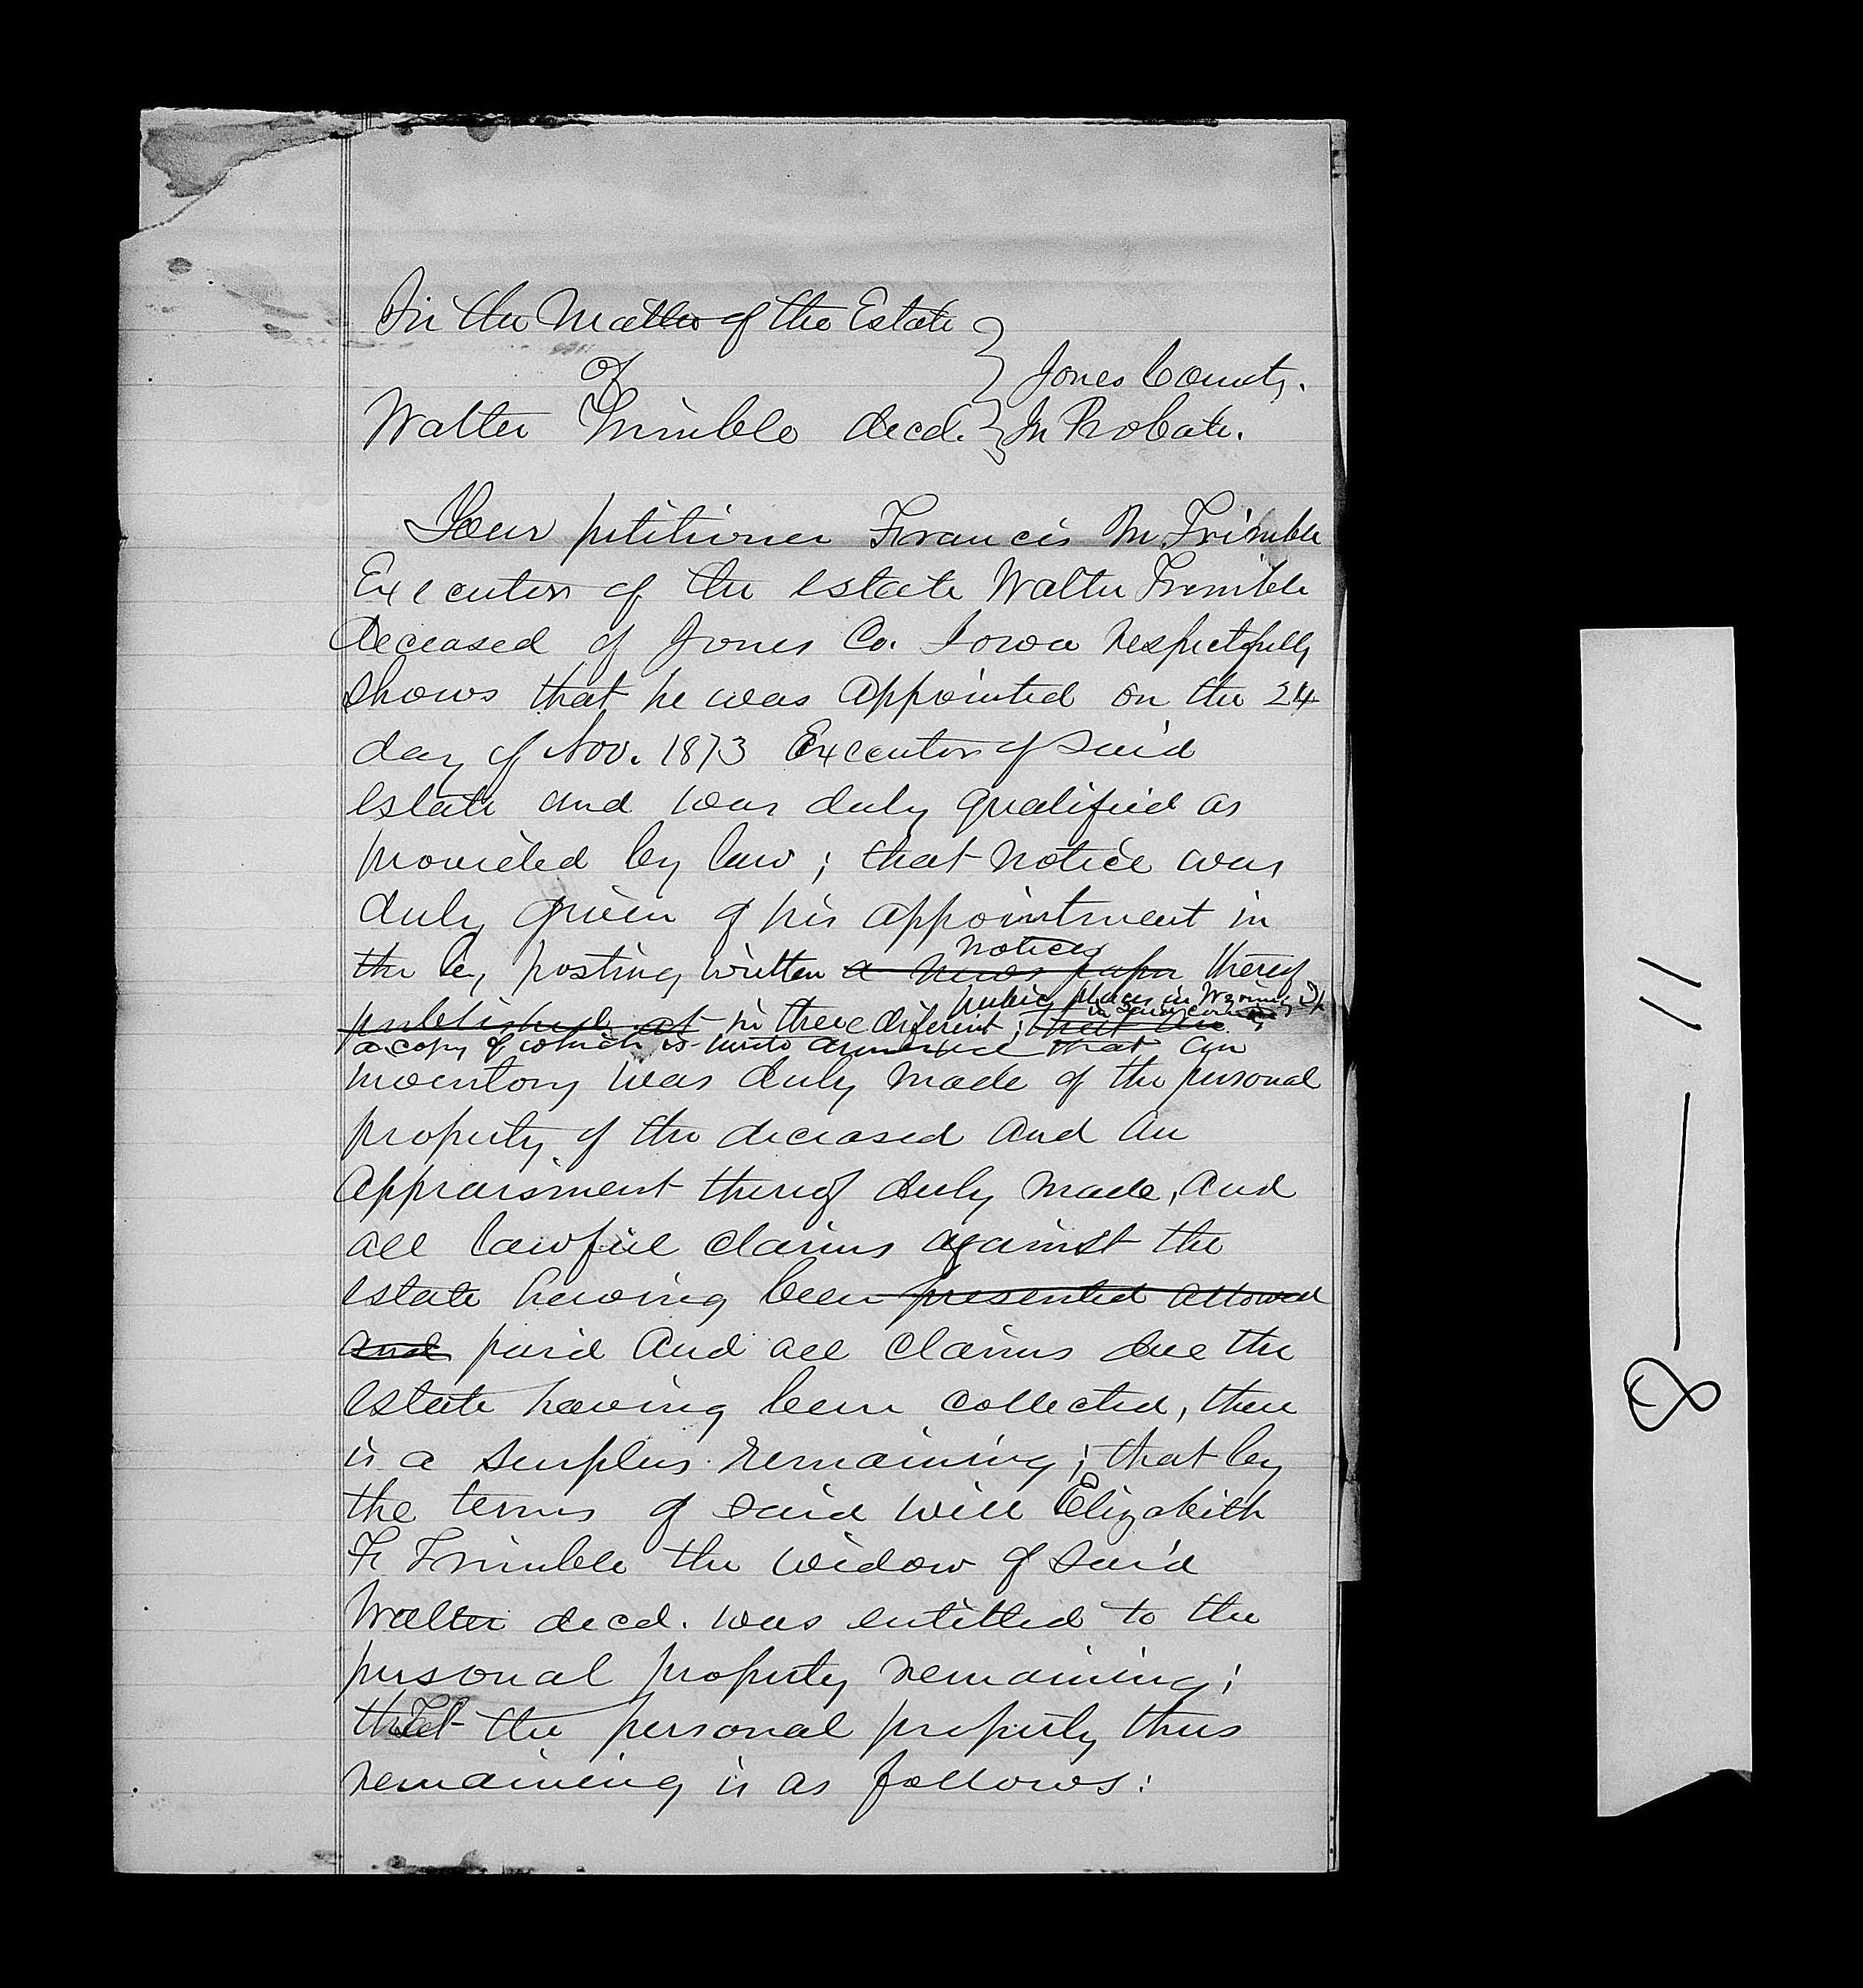 In the Matter of the Estate
of
Walter Trimble decd.
Jones County.
In Probate.
Your petitioner Francis M. Trimble
Executor of the estate Walter Trimble
deceased of Jones Co. Iowa respectfully
shows that he was appointed on the 24
day of Nov. 1873 Executor of said
estate and was duly qualified as
provided by law; that notice was
duly given of his appointment in
notices
the by posting written a news paper thereof
public places in Wyoming Tp
in Jones County
published at in three different; that an
a copy of which is hereto annexed that an
inventory was duly made of the personal
property of the deceased and an
appraisment thereof duly made, and
all lawful claims against the
estate having been presented allowed
and paid and all claims due the
estate having been collected, there
is a surplus remaining; that by
the terms of said will Elizabeth
F. Trimble the widow of said
Walter decd. was entitled to the
personal property remaining;
that the personal property thus
remaining is as follows:
8 — 11